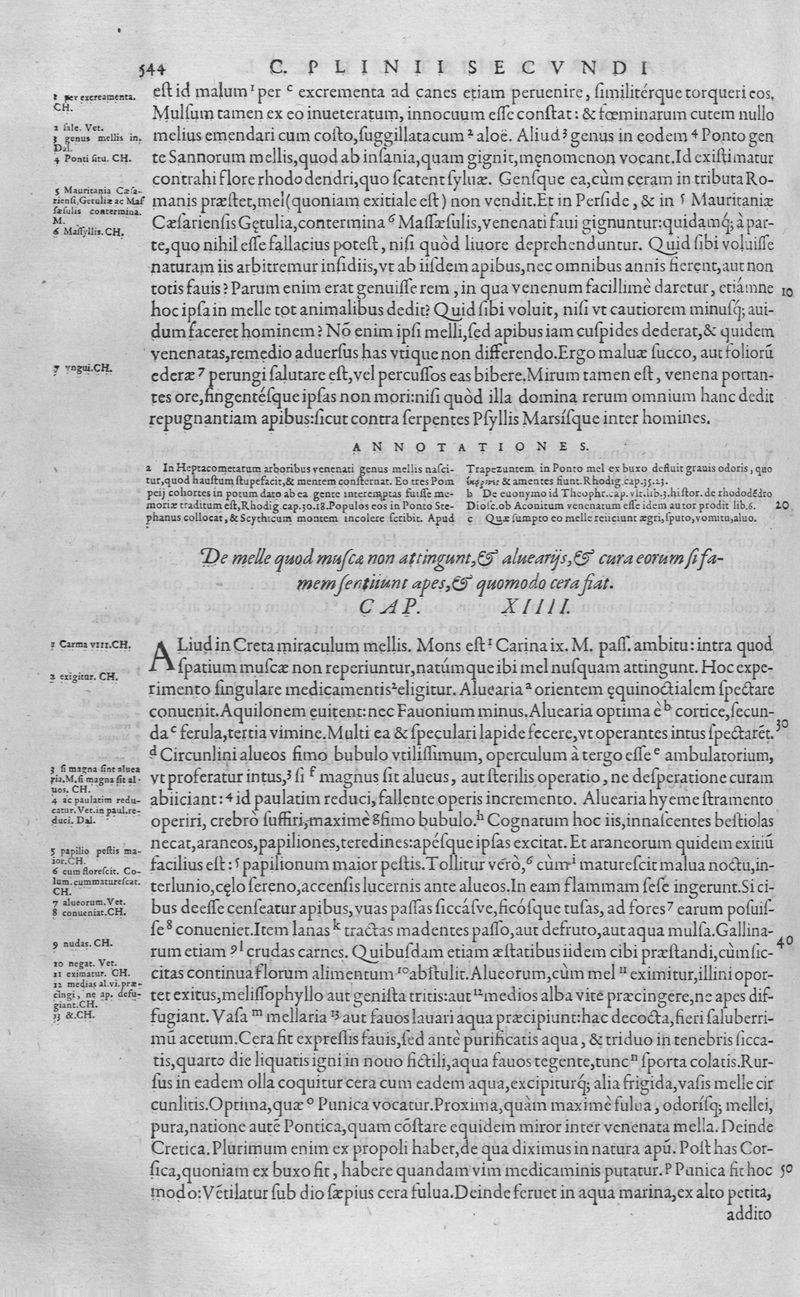 544 C. PLINII SECVNDI
1 per excreamenta. CH.
2 sale. Vet.
3 genus mellis in. Dal.
4 Ponti situ. CH.
5 Mauritania Cæsa-
riensi, Getuliæ ac Mas
sæsulis contermina.
M.
6 Massyllis. CH.
7 vngui. CH.
est id malum¹ per ᶜ excrementa ad canes etiam peruenire, similitérque torqueri eos.
Mulsum tamen ex eo inueteratum, innocuum esse constat: & fœminarum cutem nullo
melius emendari cum costo, suggillata cum ² aloë. Aliud ³ genus in eodem ⁴ Ponto gen
te Sannorum mellis, quod ab insania, quam gignit, męnomenon vocant. Id existimatur
contrahi flore rhododendri, quo scatent syluæ. Gensque ea, cùm ceram in tributa Ro-
manis præstet, mel (quoniam exitiale est) non vendit. Et in Perside, & in ⁵ Mauritaniæ
Cæsariensis Gętulia, contermina ⁶ Massæsulis, venenati faui gignuntur: quidamq́; à par-
te, quo nihil esse fallacius potest, nisi quòd liuore deprehenduntur. Quid sibi voluisse
naturam iis arbitremur insidiis, vt ab iisdem apibus, nec omnibus annis fierent, aut non
totis fauis? Parum enim erat genuisse rem, in qua venenum facillimè daretur, etiámne 10
hoc ipsa in melle tot animalibus dedit? Quid sibi voluit, nisi vt cautiorem minusq́; aui-
dum faceret hominem? Nō enim ipsi melli, sed apibus iam cuspides dederat, & quidem
venenatas, remedio aduersus has vtique non differendo. Ergo maluæ succo, aut foliorū
ederæ ⁷ perungi salutare est, vel percussos eas bibere. Mirum tamen est, venena portan-
tes ore, fingentésque ipsas non mori: nisi quòd illa domina rerum omnium hanc dedit
repugnantiam apibus: sicut contra serpentes Psyllis Marsísque inter homines.
ANNOTATIONES.
a In Heptacometarum arboribus venenati genus mellis nasci-
tur, quod haustum stupefacit, & mentem consternat. Eo tres Pom
peij cohortes in potum dato ab ea gente interemptas fuisse me-
moriæ traditum est, Rhodig. cap. 30.18. Populos eos in Ponto Ste-
phanus collocat, & Scythicum montem incolere scribit. Apud
Trapezuntem in Ponto mel ex buxo defluit grauis odoris, quo
& amentes fiunt. Rhodig. cap. 35.23.
b De euonymo id Theophr. cap. vlt. lib. 3. histor. de rhododēdro
Diosc. ob Aconitum venenatum esse idem autor prodit lib. 6. 20
c Quæ sumpto eo melle reiiciunt ægri, sputo, vomitu, aluo.
De melle quod muscæ non attingunt, & aluearijs, & cura eorum si fa-
mem sentiunt apes, & quomodo cera fiat.
CAP. XIIII.
1 Carma VIII. CH.
2 exigitur. CH.
3 si magna sint aluea
ria. M. si magna sit al-
uos. CH.
4 ac paulatim redu-
catur. Vet. in paul. re-
duci. Dal.
5 papilio pestis ma-
ior. CH.
6 cum florescit. Co-
lum. cum maturescat.
CH.
7 alueorum. Vet.
8 conueniat. CH.
9 nudas. CH.
10 negat. Vet.
11 eximatur. CH.
12 medias al. vi. præ-
cingi, ne ap. defu-
giant. CH.
13 &. CH.
ALiud in Creta miraculum mellis. Mons est ¹ Carina ix. M. pass. ambitu: intra quod
spatium muscæ non reperiuntur, natúmque ibi mel nusquam attingunt. Hoc expe-
rimento singulare medicamentis ² eligitur. Aluearia ᵃ orientem ęquinoctialem spectare
conuenit. Aquilonem euitent: nec Fauonium minus. Aluearia optima è ᵇ cortice, secun-
da ᶜ ferula, tertia vimine. Multi ea & speculari lapide fecere, vt operantes intus spectarēt. 30
ᵈ Circunlini alueos fimo bubulo vtilissimum, operculum à tergo esse ᵉ ambulatorium,
vt proferatur intus, ³ si ᶠ magnus sit alueus, aut sterilis operatio, ne desperatione curam
abiiciant: ⁴ id paulatim reduci, fallente operis incremento. Aluearia hyeme stramento
operiri, crebrò suffiri, maximè ᵍ fimo bubulo. ʰ Cognatum hoc iis, innascentes bestiolas
necat, araneos, papiliones, teredines: apésque ipsas excitat. Et araneorum quidem exitiū
facilius est: ⁵ papilionum maior pestis. Tollitur vérò, ⁶ cùm ⁱ maturescit malua noctu, in-
terlunio, cęlo sereno, accensis lucernis ante alueos. In eam flammam sese ingerunt. Si ci-
bus deesse censeatur apibus, vuas passas siccásve, ficósque tusas, ad fores ⁷ earum posuis-
se ⁸ conueniet. Item lanas ᵏ tractas madentes passo, aut defruto, aut aqua mulsa. Gallina-
rum etiam ⁹ ˡ crudas carnes. Quibusdam etiam æstatibus iidem cibi præstandi, cùm sic- 40
citas continua florum alimentum ¹⁰ abstulit. Alueorum, cùm mel ¹¹ eximitur, illini opor-
tet exitus, melissophyllo aut genista tritis: aut ¹² medios alba vite præcingere, ne apes dif-
fugiant. Vasa ᵐ mellaria ¹³ aut fauos lauari aqua præcipiunt: hac decocta, fieri saluberri-
mū acetum. Cera fit expressis fauis, sed antè purificatis aqua, & triduo in tenebris sicca-
tis, quarto die liquatis igni in nouo fictili, aqua fauos tegente, tunc ⁿ sporta colatis. Rur-
sus in eadem olla coquitur cera cum eadem aqua, excipiturq́; alia frigida, vasis melle cir
cunlitis. Optima, quæ ᵒ Punica vocatur. Proxima, quàm maximè fulua, odorísq; mellei,
pura, natione autē Pontica, quam cōstare equidem miror inter venenata mella. Deinde
Cretica. Plurimum enim ex propoli habet, de qua diximus in natura apū. Post has Cor-
sica, quoniam ex buxo fit, habere quandam vim medicaminis putatur. ᵖ Punica fit hoc 50
modo: Vētilatur sub dio sæpius cera fulua. Deinde feruet in aqua marina, ex alto petita,
addito